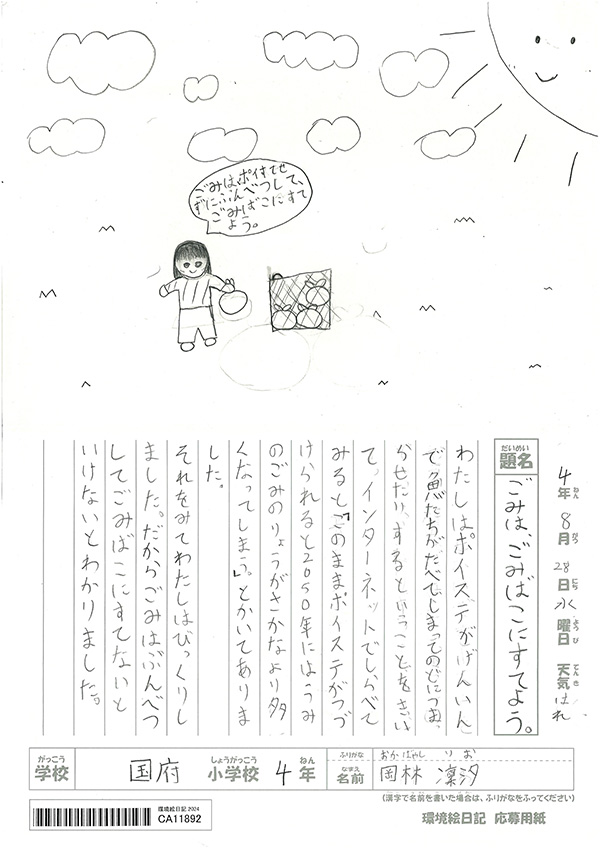 ごみは、ポイすてせ
ずにぶんべつして、
ごみばこにすて
よう。
4年ねん 8月がつ 28日にち 水曜日ようび 天気てんき はれ
題名だいめい ごみは、ごみばこにすてよう。
わたしはポイステがげんいん
で、魚たちがたべてしまってのどにつま
かせたり、するということをきい
て、インターネットでしらべて
みると「このままポイステがつづ
けられると2050年にはうみ
のごみのりょうがさかなより多
くなってしまう」。とかいてありま
した。
それをみてわたしはびっくりし
ました。だからごみはぶんべつ
してごみばこにすてないと
いけないとわかりました。
がっこう しょうがっこう ねん ふりがな おかばやし りお
学校 国府 小学校 4年 なまえ 名前 岡林 凜汐
(漢字で名前を書いた場合は、ふりがなをふってください)
環境絵日記 2024
CA11892
環境絵日記 応募用紙